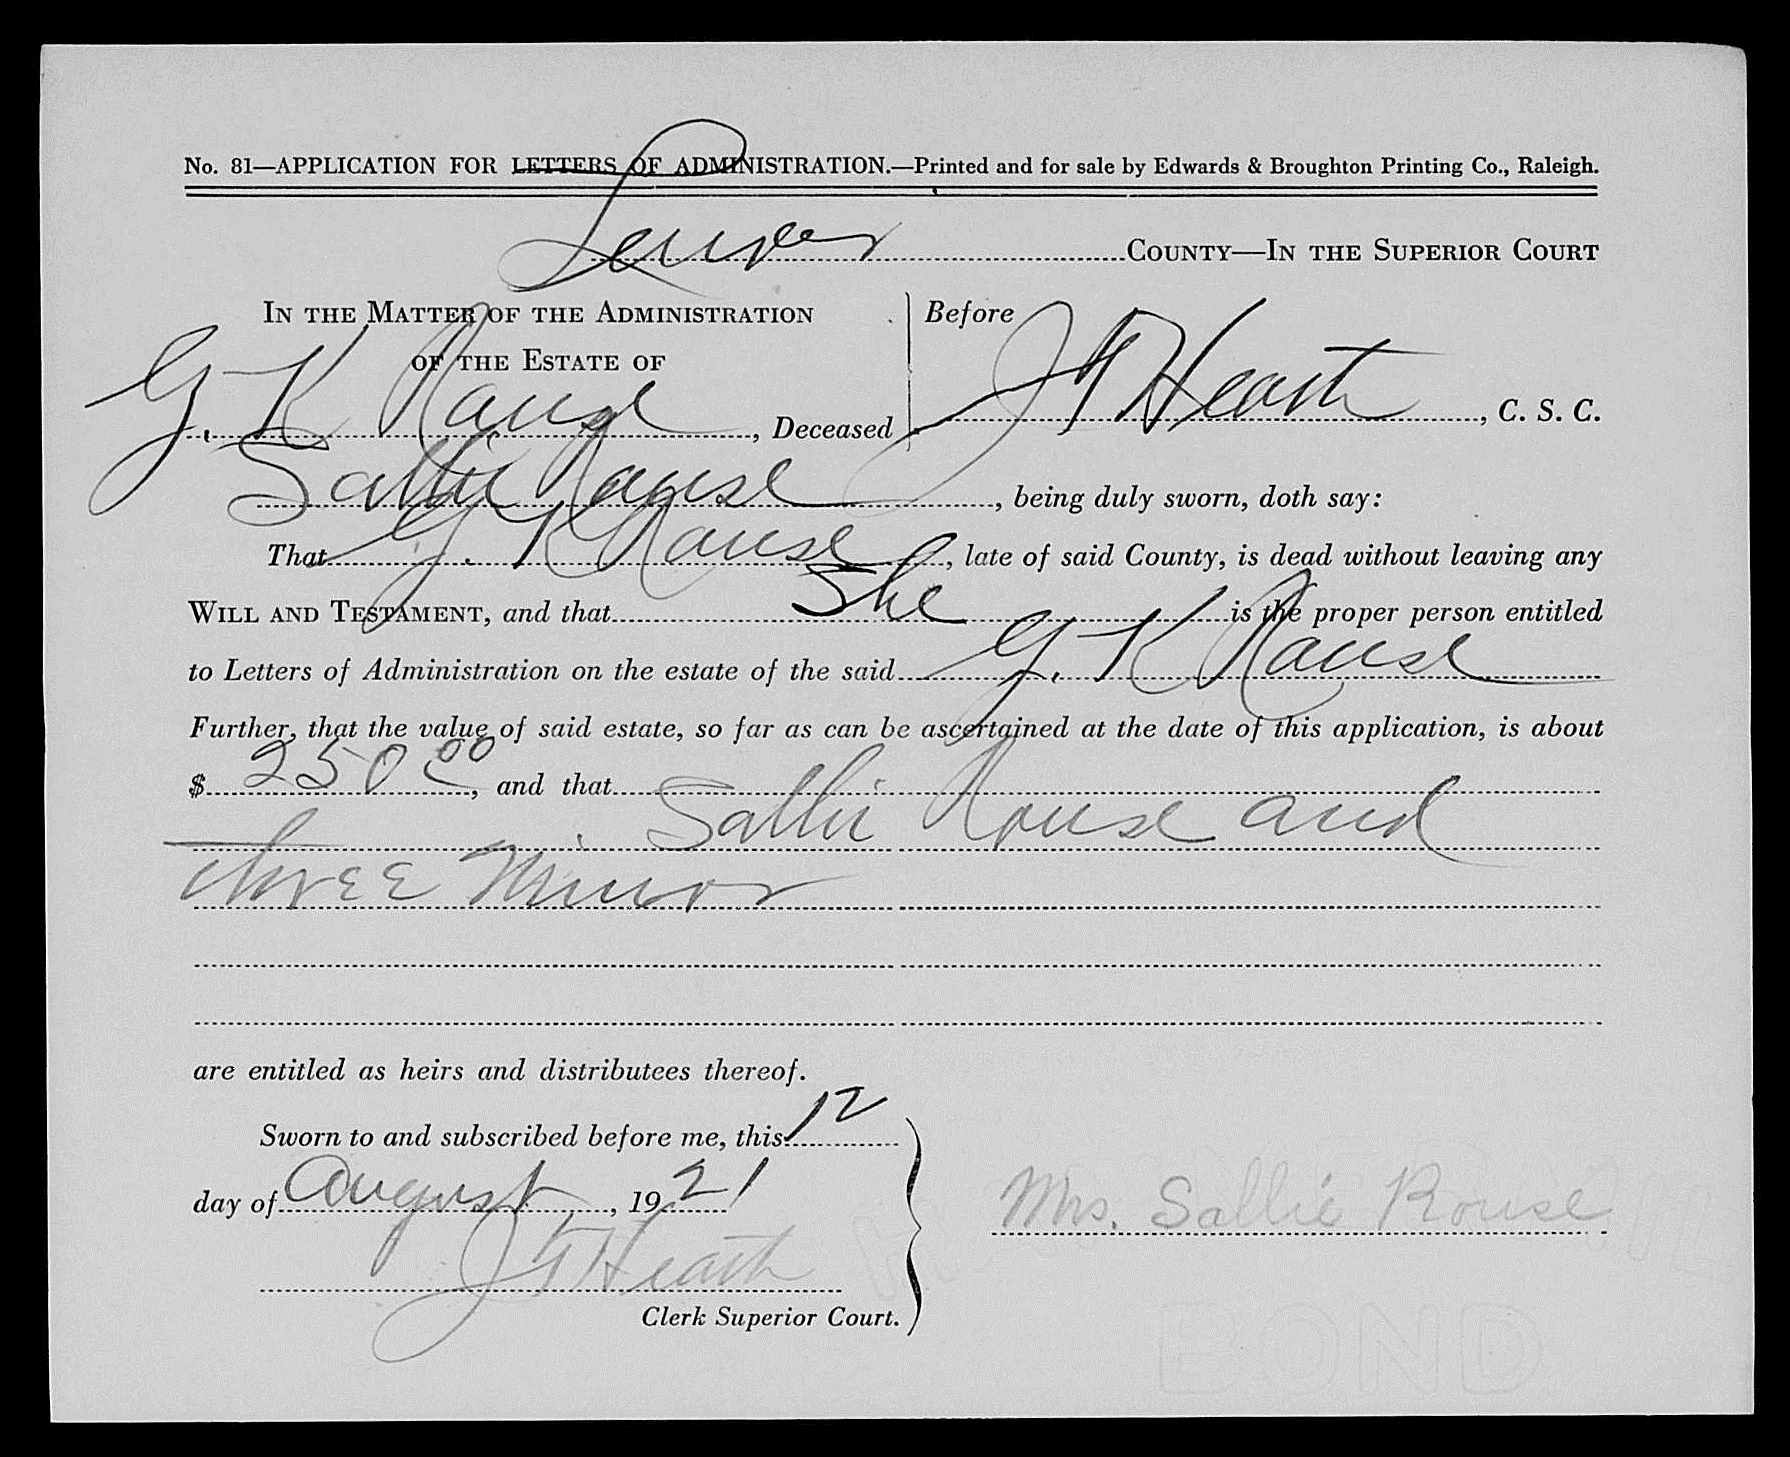 No. 81—APPLICATION FOR LETTERS OF ADMINISTRATION.—Printed and for sale by Edwards & Broughton Printing Co., Raleigh.
Lenoir COUNTY—IN THE SUPERIOR COURT
IN THE MATTER OF THE ADMINISTRATION
OF THE ESTATE OF
G. K Rouse, Deceased
Before
J T Heath, C. S. C.
Sallie Rouse, being duly sworn, doth say:
That G. K Rouse, late of said County, is dead without leaving any
WILL AND TESTAMENT, and that She is the proper person entitled
to Letters of Administration on the estate of the said G. K Rouse
Further, that the value of said estate, so far as can be ascertained at the date of this application, is about
$ 250 00, and that
Sallie Rouse and
three Minor
are entitled as heirs and distributees thereof.
Sworn to and subscribed before me, this 12
day of August, 1921
Mrs. Sallie Rouse
J T Heath
Clerk Superior Court.
BOND